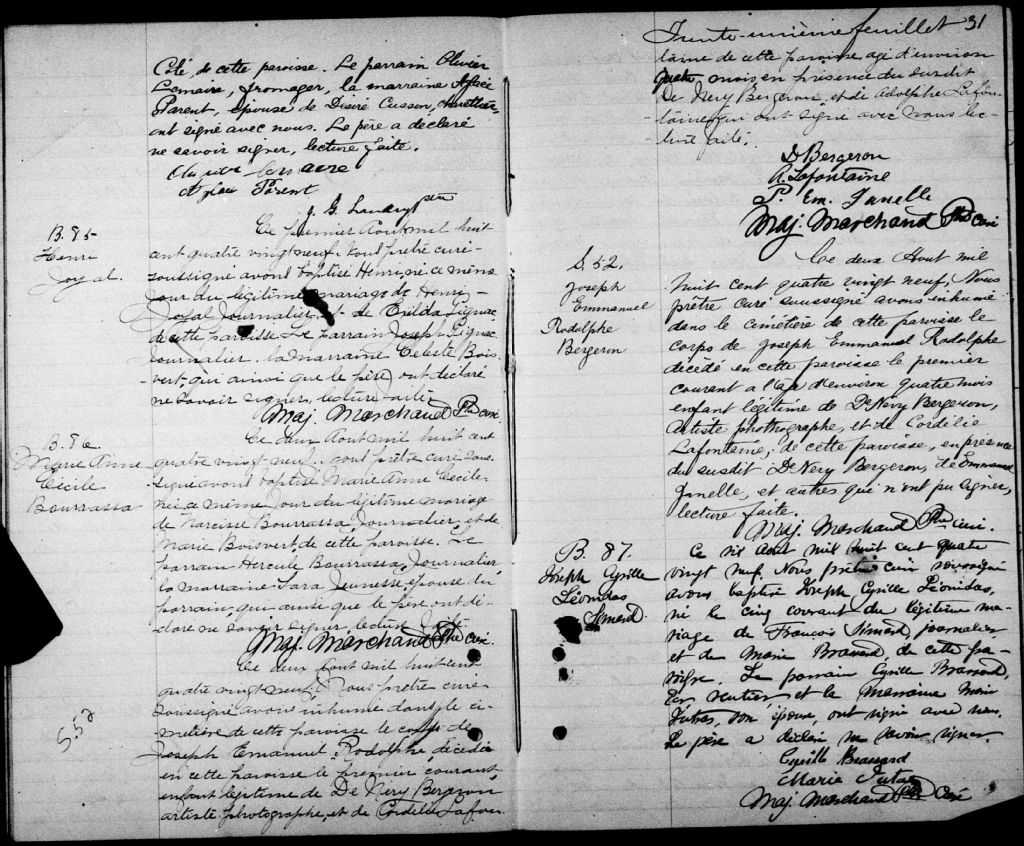 Côté, de cette paroisse. Le parrain Olivier
Lemaire, fromager, la marraine
Parent, épouse de Désiré Cusson, charretier,
ont signé avec nous. Le père a déclaré
ne savoir signer, lecture faite.
Parent
J. G. Landry ptre
B. 85
Henri
Joyal.
Ce premier Aout mil huit
cent quatre vingt neuf. Nous prêtre curé
soussigné avons baptisé Henri, né ce même
jour du légitime mariage de Henri
Joyal Journalier, & de Exilda Lignac
de cette paroisse Le parrain Joseph Lignac
Journalier, la marraine Celeste Bois-
-vert, qui ainsi que le père, ont déclaré
ne savoir signer, lecture faite
Maj. Marchand Ptre curé
B. 86
Marie Anne
Cécile
Bourrassa
Ce deux Aout mil huit cent
quatre vingt neuf. Nous prêtre curé sous-
-signé avons baptisé Marie Anne Cécile
née ce même jour du légitime mariage
de Narcisse Bourrassa, Journalier, et de
Marie Boisvert, de cette paroisse. Le
parrain Hercule Bourrassa, Journalier
la marraine Sara Jeunesse, épouse du
parrain, qui ainsi que le père ont dé-
-claré ne savoir signer, lecture faite
Maj. Marchand Ptre curé
S. 52
Ce deux Aout mil huit cent
quatre vingt neuf, Nous prêtre curé
soussigné avons inhumé dans le ci-
metière de cette paroisse le corps de
Joseph Emanuel Rodolphe, décédé
en cette paroisse le premier courant,
enfant légitime de De Néry Bergeron
artiste photographe, et de Cordélie Lafon-
Trente-unième feuillet 31
taine de cette paroisse agé d'environ
quatre mois, en présence du susdit
De Néry Bergeron, et de Adolphe Lafon-
-taine qui ont signé avec nous lec-
-ture faite.
D. Bergeron
A. Lafontaine
P. Em. Janelle
Maj. Marchand Ptre curé
S. 52.
Joseph
Emmanuel
Rodolphe
Bergeron
Ce deux Aout mil
huit cent quatre vingt neuf, Nous
prêtre curé soussigné avons inhumé
dans le cemétère de cette paroisse le
corps de Joseph Emmanuel Rodolphe
décédé en cette paroisse le premier
courant a l'age d'environ quatre mois
enfant légitime de De Néry Bergeron,
Artiste photographe, et de Cordélie
Lafontaine, de cette paroisse, en présence
du susdit De Nery Bergeron, de Emmanuel
Janelle, et autres qui n'ont pu signer,
lecture faite.
Maj. Marchand Ptre curé.
B. 87.
Joseph Cyrille
Léonidas
Simard
Ce six Aout mil huit cent quatre
vingt neuf. Nous prêtre curé soussigné
avons baptisé Joseph Cyrille Léonidas,
né le cinq courant du légitime ma-
riage de François Simard, journalier
et de Marie Brassard, de cette pa-
roisse. Le parrain Cyrille Brassard,
rentier, et la marraine Marie
Dutas, son épouse, ont signé avec nous.
Le père a déclaré ne savoir signer.
Cyrille Brassard
Marie
Maj. Marchand Ptre Curé